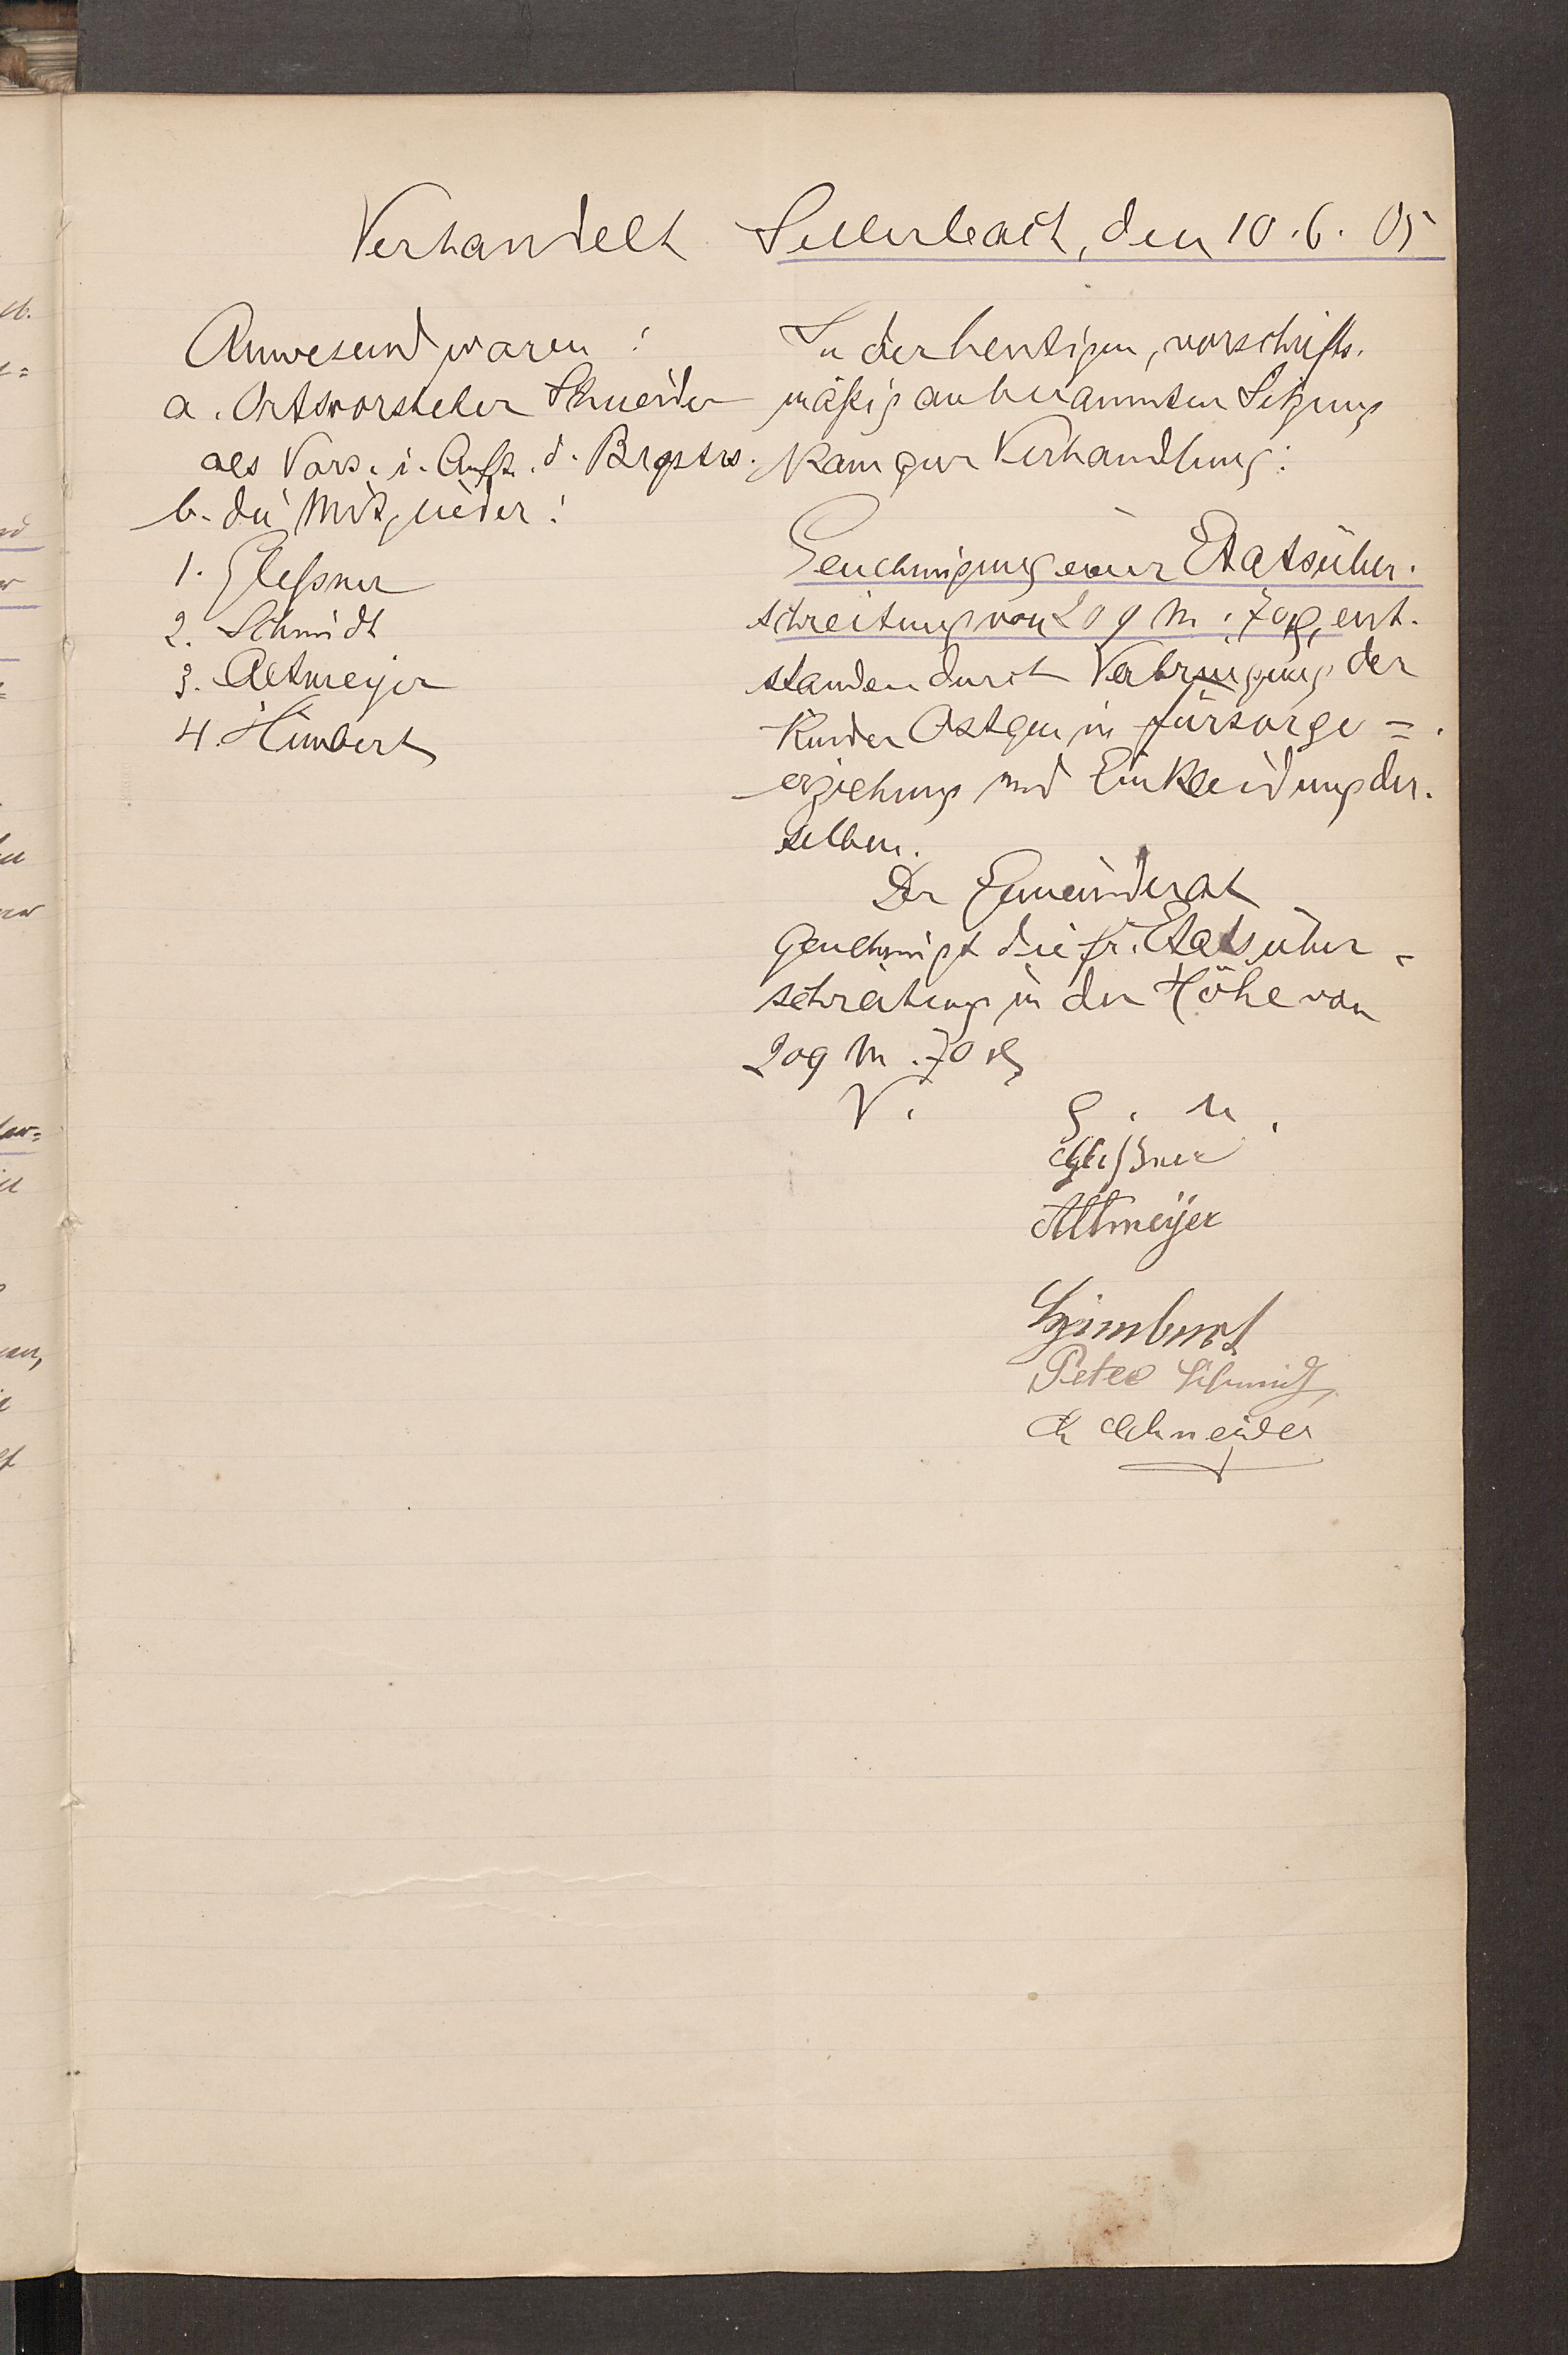 Verhandelt Sellerbach, den 10.6.05
Anwesend waren:
a. Ortsvorsteher Schneider
als Vors. i. Auftr. d. Brgstrs.
b. die Mitglieder:
1. Gleßner
2. Schmidt
3. Altmeyer
4. Himbert
In der heutigen, vorschrifts-
mäßig anberaumten Sitzung
kam zur Verhandlung:
Genehmigung einer Etatsüber-
schreitung von 209 M. 70 ₰, ent-
standen durch Verbringung der
Kinder Ostgen in Fürsorge=
erziehung und Einkleidung der-
selben.
Der Gemeinderat
genehmigt die fr. Etatsüber-
schreitung in der Höhe von
209 M. 70 ₰
V. g. u.
Gleßner
Altmeyer
Himbert
Peter Schmidt
Schneider